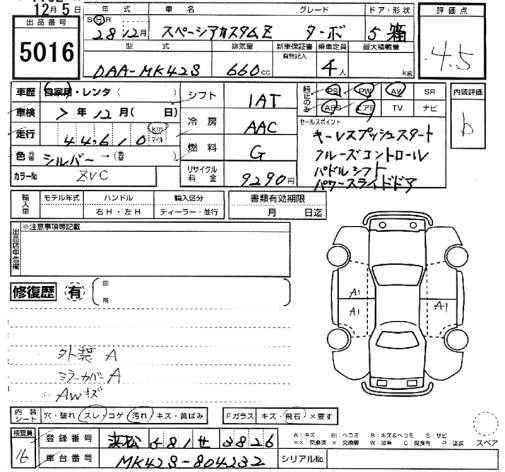 12月5日
出品番号
5016
年式 車名 グレード ドア・形状
S H R 28年12月 スペーシアカスタムZ ターボ 5 箱
型式 排気量 新車保証書 乗定員 最大積載量
有無記入
DAA-MK42S 660cc 4人 kg
評価点
4.5
車歴 自家用・レンタ( )
車検 7年12月( 日)
走行 44,610 km マイル
色 シルバー→( )
カラーNo ZVC
シフト IAT
冷房 AAC
燃料 G
リサイクル料金 9290円
純正のみ PS PW AW SR
ABS エアB TV ナビ
内装評価
b
セールスポイント
キーレスプッシュスタート
クルーズコントロール
パドルシフト
パワースライドドア
輸入車 モデル年式 ハンドル 輸入区分 書類有効期限
右H・左H ディーラー・並行 月 日迄
※注意事項等記載
修復歴 有
外装A
ミラーカバーA
AWキズ
A1 A1 A1
内装シート 穴・破れ スレ コゲ 汚れ キズ・黄ばみ Fガラス キズ・飛石 ×要す
検査員 16
登録番号 浜松 581 せ 3826
車台番号 MK42S-804232
シリアルNo.
A:キズ U:ヘコミ B:キズ&ヘコミ S:サビ
スペア